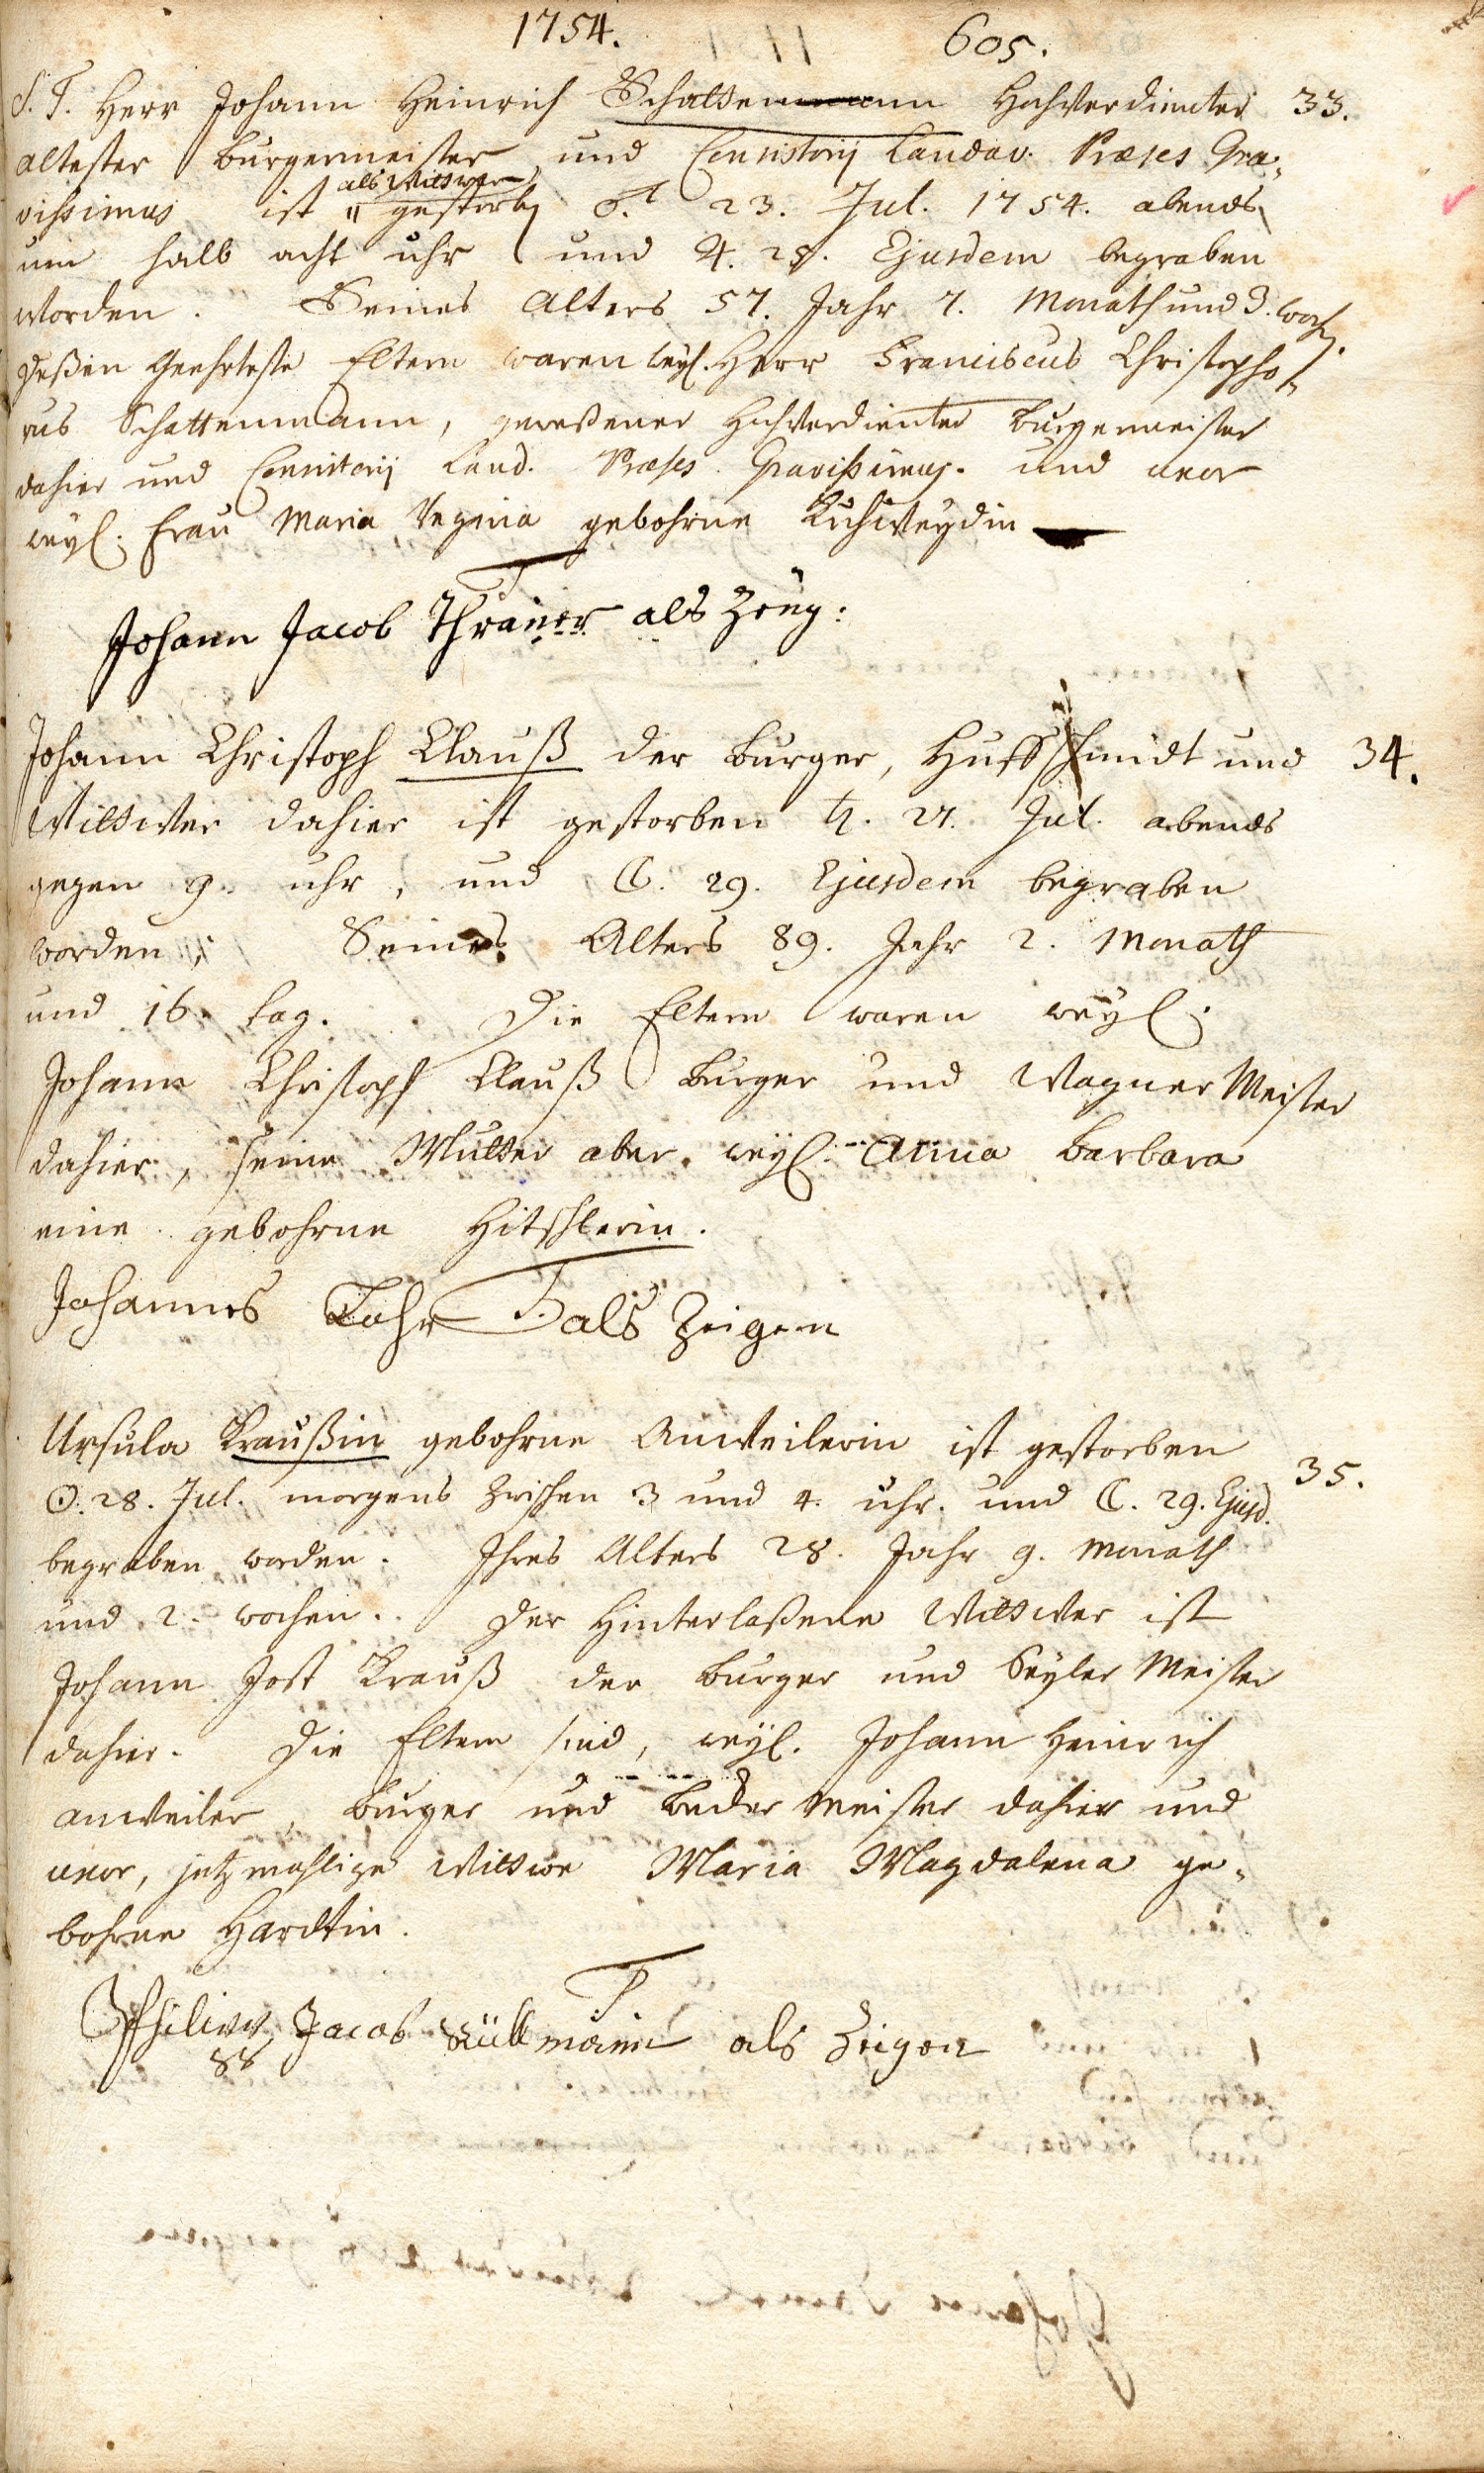 1754. 605.
S. T. Herr Johann Heinrich Schattenmann Hochverdienter 33.
altester Burgermeister und Consistorij Landav. Præses Gra-
vissimus ist als Wittwer gestorben ♂. 23. Jul. 1754. abends
um halb acht uhr und ♃. 25. Ejusdem begraben
worden. Seines Alters 57. Jahr 7. Monath und 3. woch.
deßen Geehrteste Eltern waren weyl. Herr Franciscus Christopho-
rus Schattenmann, gewesener Hochverdienter Burgermeister
dahier und Consistorij Land. Præses Gravissimus. und uxor
weyl. Frau Maria Regina gebohrne
Johann Jacob Thraner als Zeug:
Johann Christoph Clauß der Burger, Huffschmidt und 34.
Wittwer dahier ist gestorben ♄. 27. Jul. abends
gegen 9. uhr, und ☾. 29. Ejusdem begraben
worden; Seines Alters 89. Jahr 2. Monath
und 16. tag. Die Eltern waren weyl.
Johann Christoph Clauß Burger und Wagner Meister
dahier, seine Mutter aber weyl. Anna Barbara
eine gebohrne Hitschlerin.
Johannes als Zeigen
Ursula Kraußin gebohrne Anweilerin ist gestorben 35.
☉. 28. Jul. morgens zwischen 3 und 4. uhr. und ☾. 29. Ejusd.
begraben worden. Ihres Alters 28. Jahr 9. Monath
und 2. wochen. Der Hinterlaßene Wittwer ist
Johann Jost Krauß der Burger und Seyler Meister
dahier. Die Eltern sind, weyl. Johann Heinrich
anweiler, Burger und Meister dahier und
uxor, jetzmahlige Wittwe Maria Magdalena ge-
bohrne Hardtin.
Philipp Jacob Küllmann als Zeigen